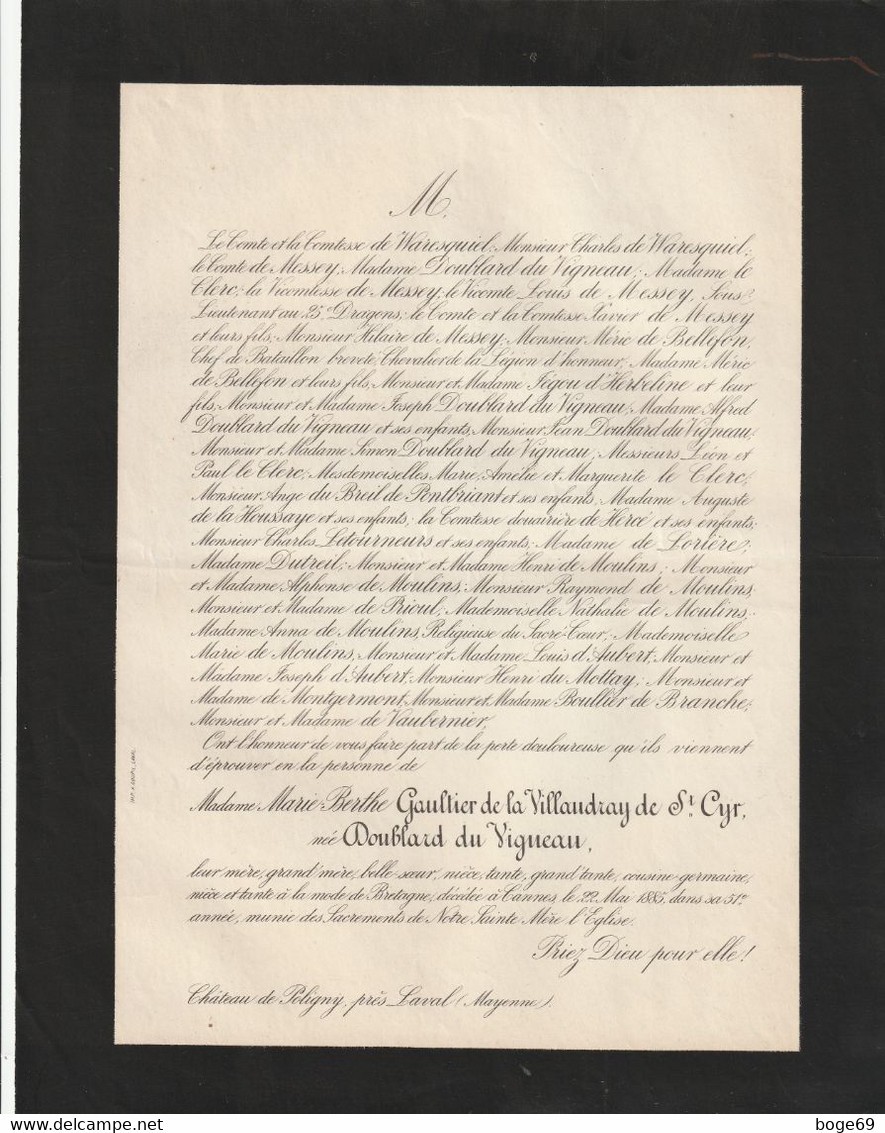 M.
Le Comte et la Comtesse de Waresquiel; Monsieur Charles de Waresquiel;
le Comte de Messey, Madame Doublard du Vigneau; Madame le
Clerc; la Vicomtesse de Messey; le Vicomte Louis de Messey, Sous-
Lieutenant au 25e Dragons; le Comte et la Comtesse Xavier de Messey
et leurs fils; Monsieur Hilaire de Messey; Monsieur Méric de Bellefon,
Chef de Bataillon breveté, Chevalier de la Légion d'honneur, Madame Méric
de Bellefon et leurs fils; Monsieur et Madame Jégou d'Herbeline et leur
fils; Monsieur et Madame Joseph Doublard du Vigneau; Madame Alfred
Doublard du Vigneau et ses enfants; Monsieur Jean Doublard du Vigneau;
Monsieur et Madame Simon Doublard du Vigneau; Messieurs Léon et
Paul le Clerc; Mesdemoiselles Marie, Amélie et Marguerite le Clerc;
Monsieur Ange du Breil de Pontbriant et ses enfants; Madame Auguste
de la Houssaye et ses enfants; la Comtesse douairière de Hercé et ses enfants;
Monsieur Charles Letourneurs et ses enfants; Madame de Lorière;
Madame Dutreil; Monsieur et Madame Henri de Moulins; Monsieur
et Madame Alphonse de Moulins; Monsieur Raymond de Moulins;
Monsieur et Madame de Rioul; Mademoiselle Nathalie de Moulins;
Madame Anna de Moulins, Religieuse du Sacré-Cœur; Mademoiselle
Marie de Moulins, Monsieur et Madame Louis d'Aubert; Monsieur et
Madame Joseph d'Aubert; Monsieur Henri du Mottay; Monsieur et
Madame de Montgermont; Monsieur et Madame Boullier de Branche;
Monsieur et Madame de Vaubernier,
Ont l'honneur de vous faire part de la perte douloureuse qu'ils viennent
d'éprouver en la personne de
Madame Marie-Berthe Gaultier de la Villaudray de St. Cyr,
née Doublard du Vigneau,
leur mère, grand'mère, belle-sœur, nièce, tante, grand'tante, cousine germaine,
nièce et tante à la mode de Bretagne, décédée à Cannes, le 22 Mai 1885, dans sa 51e
année, munie des Sacrements de Notre Sainte Mère l'Eglise.
Priez Dieu pour elle!
Château de Poligny, près Laval (Mayenne).
delcampe.net
boge69